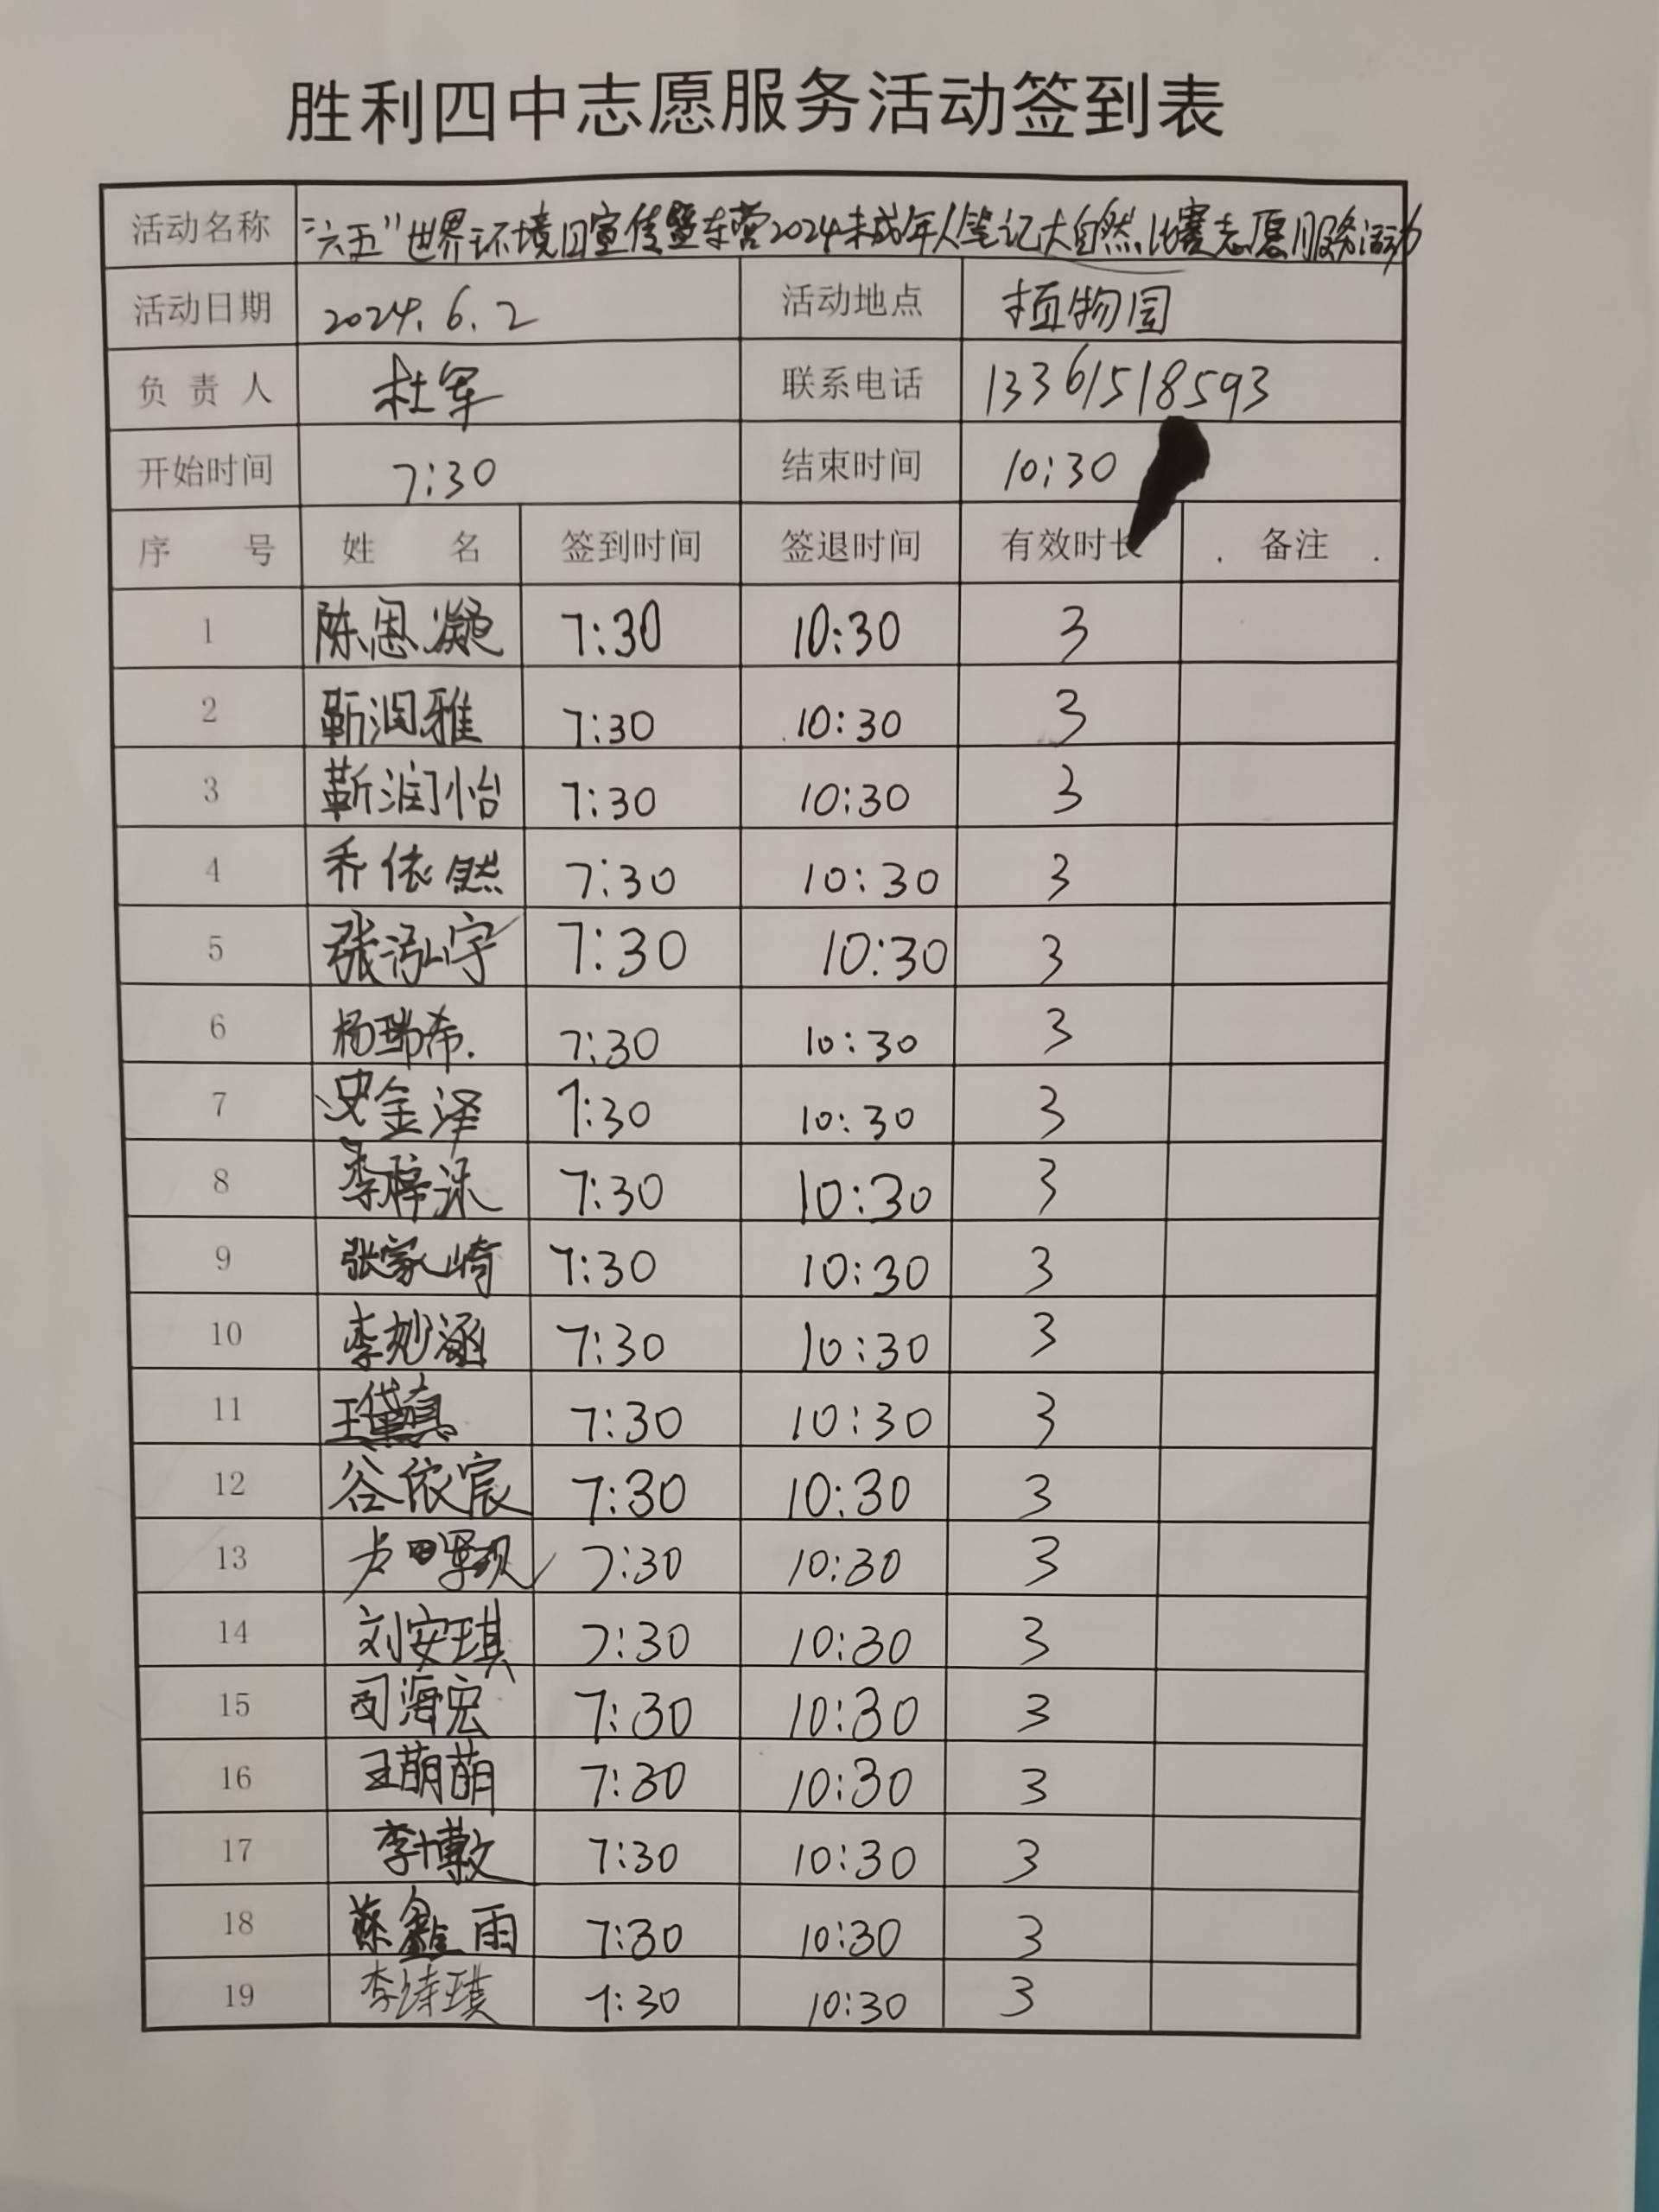 胜利四中志愿服务活动签到表
活动名称 "六五"世界环境日宣传暨东营2024未成年人笔记大自然比赛志愿服务活动
活动日期 2024.6.2 活动地点 植物园
负责人 杜军 联系电话 13361518593
开始时间 7:30 结束时间 10:30
序号 姓名 签到时间 签退时间 有效时长 备注
1 陈思凝 7:30 10:30 3
2 靳润雅 7:30 10:30 3
3 靳润怡 7:30 10:30 3
4 乔依然 7:30 10:30 3
5 张泓宇 7:30 10:30 3
6 杨瑞希 7:30 10:30 3
7 史金泽 7:30 10:30 3
8 李梓涵 7:30 10:30 3
9 张家崎 7:30 10:30 3
10 李妙涵 7:30 10:30 3
11 王 7:30 10:30 3
12 谷依宸 7:30 10:30 3
13 卢 7:30 10:30 3
14 刘安琪 7:30 10:30 3
15 司海宏 7:30 10:30 3
16 王萌萌 7:30 10:30 3
17 李博敏 7:30 10:30 3
18 雨 7:30 10:30 3
19 李诗琪 7:30 10:30 3